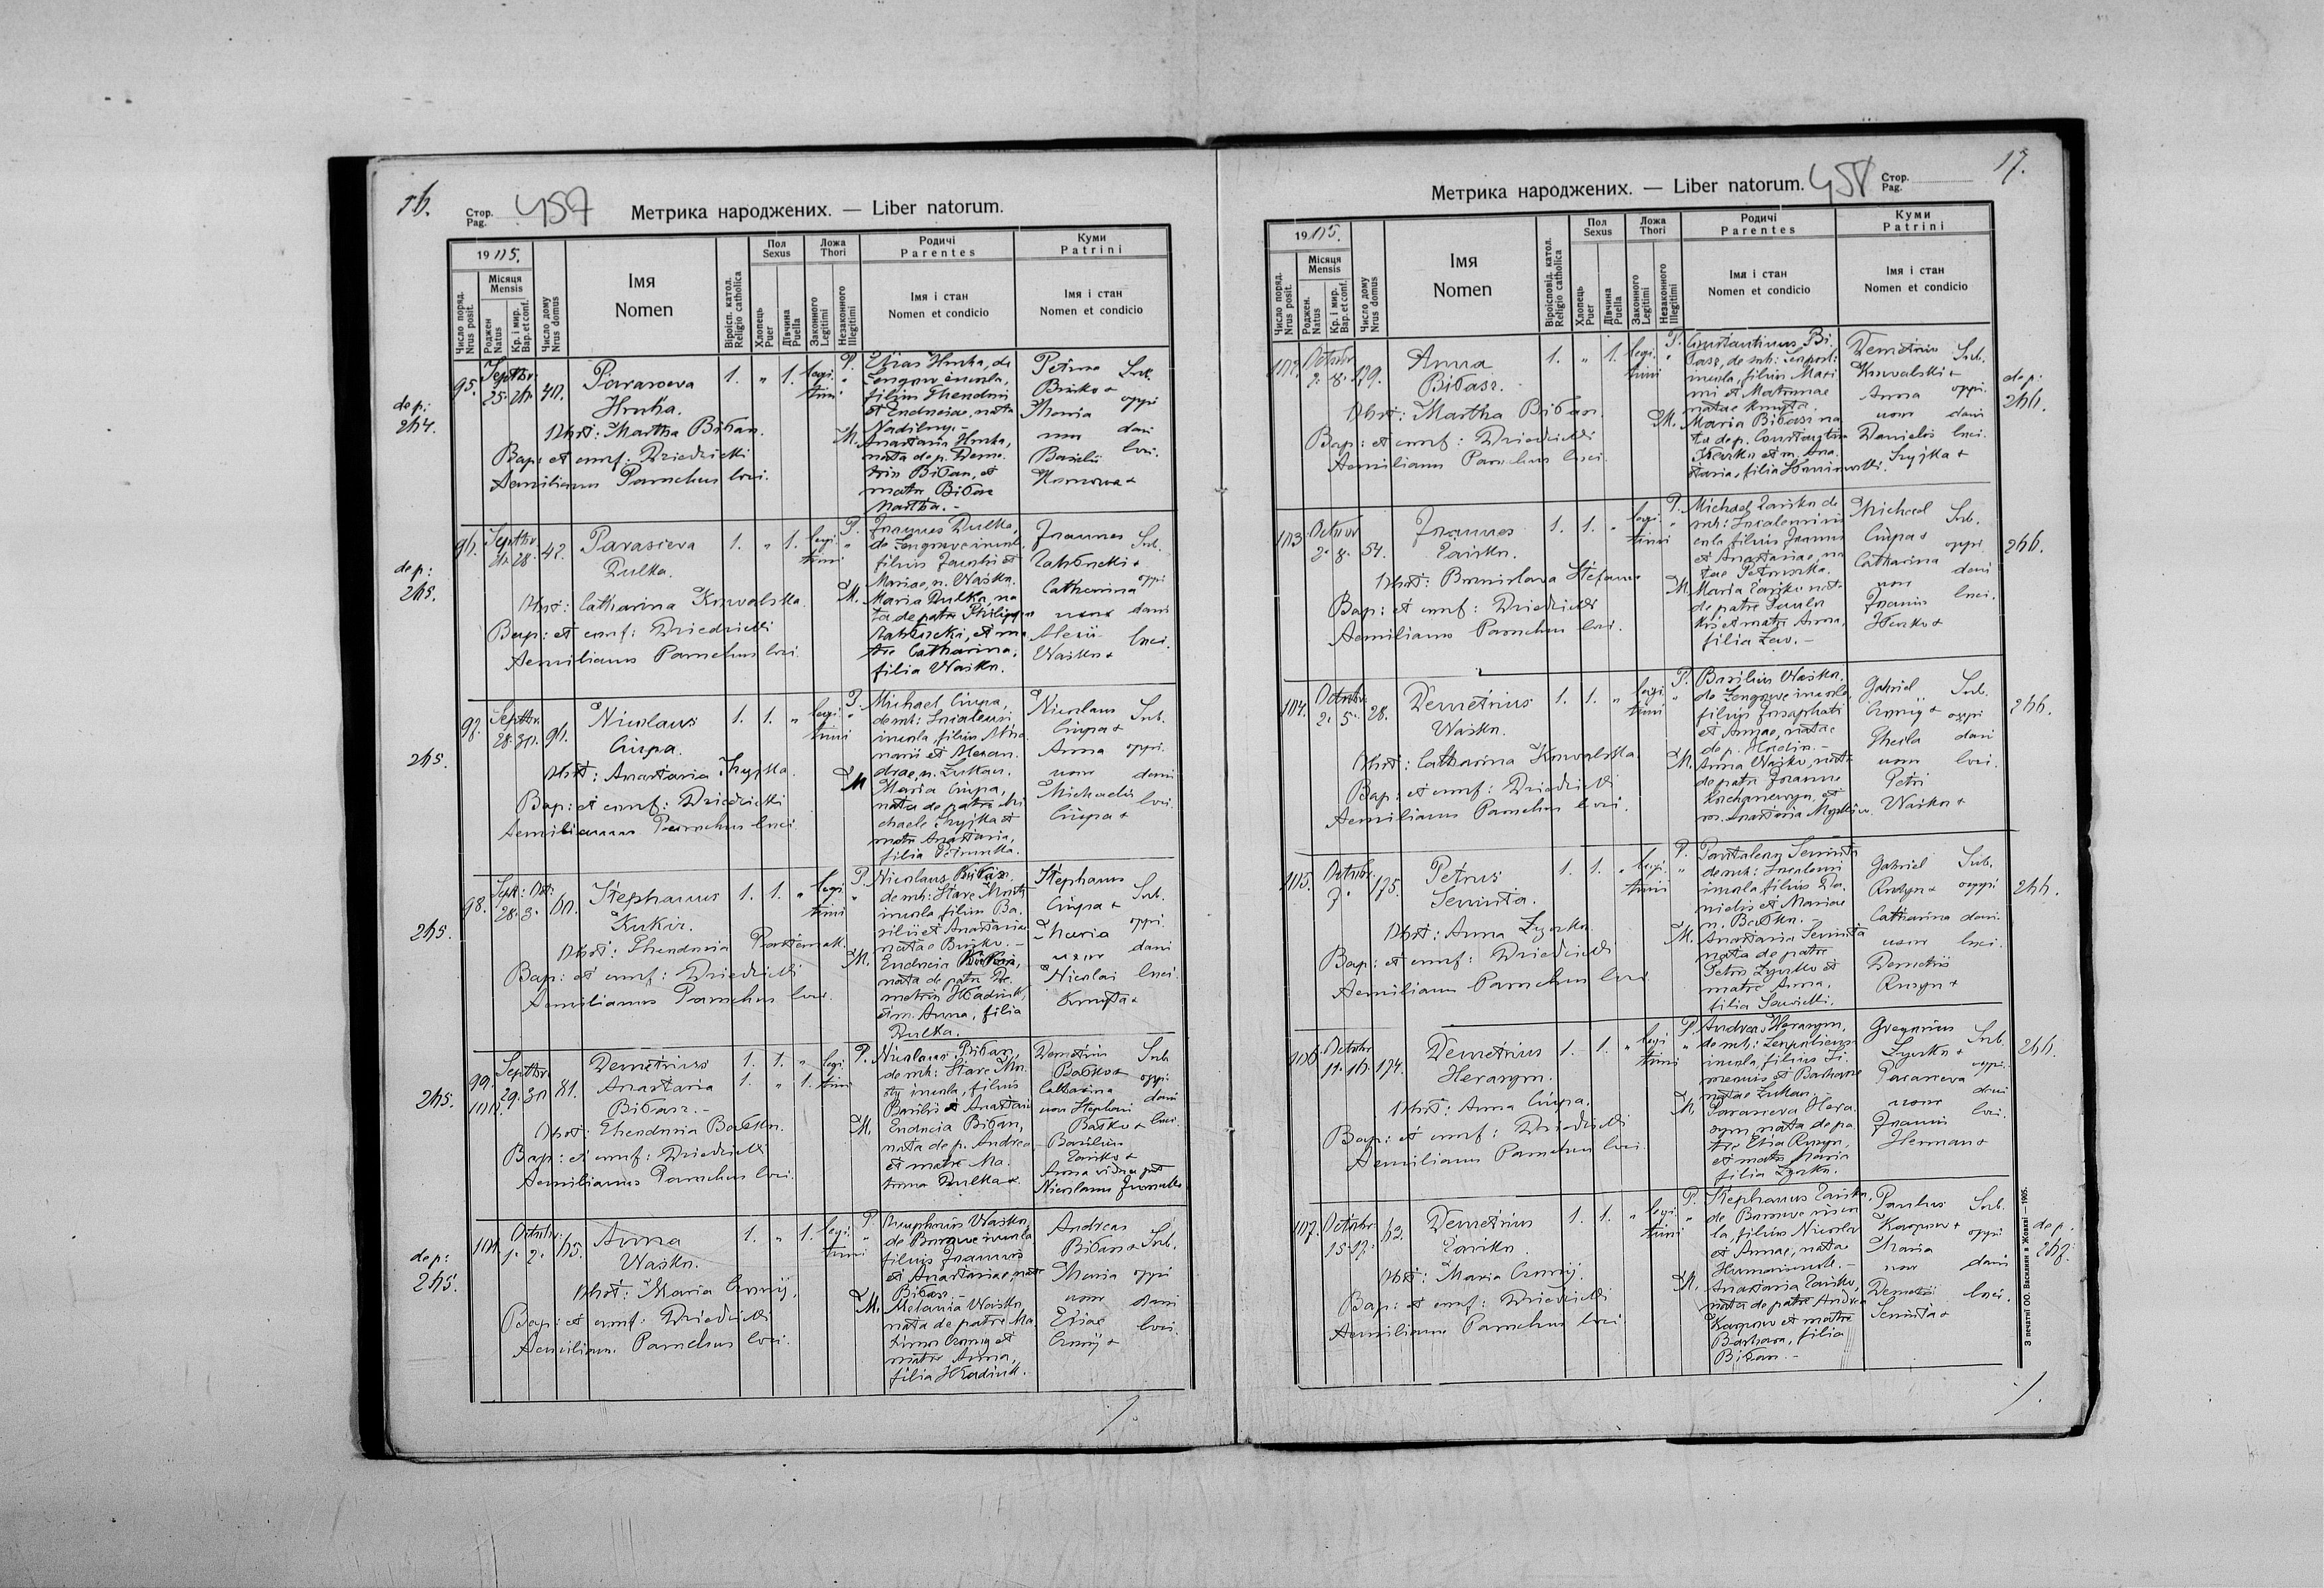 16.
Стор.
Pag.
457
Метрика народжених. — Liber natorum.
1905.
Число поряд.
Nrus posit.
Місяця
Mensis
Роджен
Natus
Кр. і мир.
Bap. et conf.
Число дому
Nrus domus
Імя
Nomen
Віроісп. катол.
Religio catholica
Пол
Sexus
Хлопець
Puer
Дівчина
Puella
Ложа
Thori
Законного
Legitimi
Незаконного
Illegitimi
Родичі
Parentes
Імя і стан
Nomen et condicio
Куми
Patrini
Імя і стан
Nomen et condicio
de p:
264.
95.
Septbr
25. 26.
40.
Parasceva
Hruha.
Obst: Martha Biłan.
Bap: et conf: Dziedzicki
Aemilianus Parochus loci.
1. „ 1. legi-
timi „
P. Elias Hruha, de
incola,
filius Theodori
et Eudociae, nata
M. Anastasia Hruha,
nata de p. Deme-
trio Biłan, et
matre Biłan
Martha.-
Petrus
Bośko +
Maria
uxor
Basilii
Sub.
oppi
dani
loci.
de p:
265.
96.
Septbr
28.
42.
Parasceva
Dulka.
Obst: Catharina Kowalska.
Bap: et conf: Dziedzicki
Aemilianus Parochus loci.
1. „ 1. legi-
timi „
P. Joannes Dulka,
filius Jacobi et
Mariae, n. Waśko.
M. Maria Dulka, na-
ta de patre Philippo
et ma-
tre Catharina,
filia Waśko.
Joannes
Catharina
uxor
Alexii
Waśko +
Sub.
oppi
dani
loci.
265.
97.
Septbr.
28. 30.
96.
Nicolaus
Ciupa.
Obst: Anastasia Szyjka.
Bap: et conf: Dziedzicki
Aemilianus Parochus loci.
1. 1. „ legi-
timi „
P. Michael Ciupa,
incola, filius
et Alexan-
drae, n. Łukan.
M. Maria Ciupa,
nata de patre Mi-
chaele Szyjka et
matre Anastasia,
filia Petruszka.
Nicolaus
Ciupa +
Anna
uxor
Michaelis
Ciupa +
Sub.
oppi.
dani
loci.
265.
98.
Sept: Oct:
28. 3.
60.
Stephanus
Kukiz.
Obst: Theodosia Pasternak.
Bap: et conf: Dziedzicki
Aemilianus Parochus loci.
1. 1. „ legi-
timi „
P. Nicolaus
de mb: Stare Mosty
incola filius Ba-
silii et Anastasiae
natae Bośko.-
M. Eudocia
nata de patre De-
metrio Hładiuk,
et m. Anna, filia
Dulka.
Stephanus
Ciupa +
Maria
uxor
Nicolai
Kmyta +
Sub.
oppi.
dani
loci.
265.
99.
100.
Septbr
29. 30
81.
Demetrius
Anastasia
Biłasz.-
Obst: Theodosia Bośko.
Bap: et conf: Dziedzicki
Aemilianus Parochus loci.
1. 1. „ legi-
1. „ 1. timi
P. Nicolaus Biłan,
de mb: Stare Mo-
sty incola, filius
Basilii et Anastasiae
M. Eudocia Biłan,
nata de p. Andrea
et matre Ma-
Dulka +
Demetrius
Bośko +
Catharina
uxor Stephani
Bośko +
Basilius
Zańko +
Anna vidua post
Nicolaum
Sub.
oppi.
dani
loci.
de p:
265.
101.
Octobr.
1. 2.
65.
Anna
Waśko.
Obst: Maria Czornij.
Bap: et conf: Dziedzicki
Aemilian. Parochus loci.
1. „ 1. legi-
timi „
P. Onuphrius Waśko,
incola
filius Joannis
et Anastasiae, natae
Biłasz.-
M. Melania Waśko
nata de patre Ma-
ximo Czornij et
matre Anna,
filia Hładiuk.
Andreas
Biłan +
Maria
uxor
Eliae
Czornij +
Sub.
oppi
dani
loci.
Метрика народжених. — Liber natorum.
458
Стор.
Pag.
17.
1905.
Число поряд.
Nrus posit.
Місяця
Mensis
Роджен.
Natus
Кр. і мир.
Bap. et conf.
Число дому
Nrus domus
Імя
Nomen
Віросповід. катол.
Religio catholica
Пол
Sexus
Хлопець
Puer
Дівчина
Puella
Ложа
Thori
Законного
Legitimi
Незаконного
Illegitimi
Родичі
Parentes
Імя і стан
Nomen et condicio
Куми
Patrini
Імя і стан
Nomen et condicio
102.
Octobr
2. 8.
179.
Anna
Biłasz.
Obst: Martha Biłan.
Bap: et conf: Dziedzicki
Aemilianus Parochus loci.
1. „ 1. legi-
timi „
P. Constantinus Bi-
łasz, de mb:
incola, filius Maxi-
mi et Matronae
natae Kmyta.
M. Maria Biłasz na-
ta de p. Constantino
et m. Ana-
stasia, filia
Demetrius
Kowalski +
Anna
uxor
Danielis
Szyjka +
Sub.
oppi.
dani
loci.
de p:
266.
103
Octobr
2. 8.
54.
Joannes
Zańko.
Obst: Bronislava Stefanie
Bap: et conf: Dziedzicki
Aemilianus Parochus loci.
1. 1. „ legi-
timi „
P. Michael Zańko de
filius Joannis
et Anastasiae, na-
tae Petruszka.
M. Maria Zańko nat.
de patre Paulo
et matre Anna,
filia Lew.-
Michael
Ciupa +
Catharina
uxor
Joannis
Sub.
oppi
dani
loci.
266.
104.
Octobr.
2. 5.
28.
Demetrius
Waśko.
Obst: Catharina Kowalska.
Bap: et conf: Dziedzicki
Aemilianus Parochus loci.
1. 1. „ legi-
timi „
P. Basilius Waśko,
incola,
filius Josaphati
et Annae, natae
M. Anna Waśko, nata
de patre Joanne
et
m. Anastasia
Gabriel
Czornij +
Thecla
uxor
Petri
Waśko +
Sub.
oppi
dani
loci.
266.
105.
Octobr.
7.
175.
Petrus
Seniuta.
Obst: Anna
Bap: et conf: Dziedzicki
Aemilianus Parochus loci.
1. 1. „ legi-
timi „
P. Pantaleon Seniuta
incola filius Da-
nielis et Mariae
n. Bośko.-
M. Anastasia Seniuta
nata de patre
Petro et
matre Anna,
filia Sawicki.
Gabriel
Rusyn +
Catharina
uxor
Demetrii
Rusyn +
Sub.
oppi
dani.
loci.
266.
106.
Octobr
14. 16.
174.
Demetrius
Herasym.
Obst: Anna Ciupa.
Bap: et conf: Dziedzicki
Aemilianus Parochus loci.
1. 1. „ legi-
timi „
P. Andreas Herasym,
incola, filius Si-
meonis et Barbarae
natae Łukan.
M. Parasceva Hera-
sym, nata de pa-
tre Elia Rusyn,
et matre Maria
filia
Gregorius
Parasceva
uxor
Joannis
Herman +
Sub.
oppi.
dani
loci.
266.
107.
Octobr.
15. 17.
62.
Demetrius
Zańko.
Obst: Maria Czornij.
Bap: et conf: Dziedzicki
Aemilianus Parochus loci.
1. 1. „ legi-
timi „
P. Stephanus Zańko,
inco-
la, filius Nicolai
et Annae, natae
M. Anastasia Zańko,
nata de patre Andrea
Karpow et matre
Barbara, filia
Biłan.-
Paulus
Karpow +
Maria
uxor
Demetrii
Seniuta +
Sub.
oppi
dani
loci.
de p.
267.
З печатні ОО. Василиян в Жовкві — 1905.